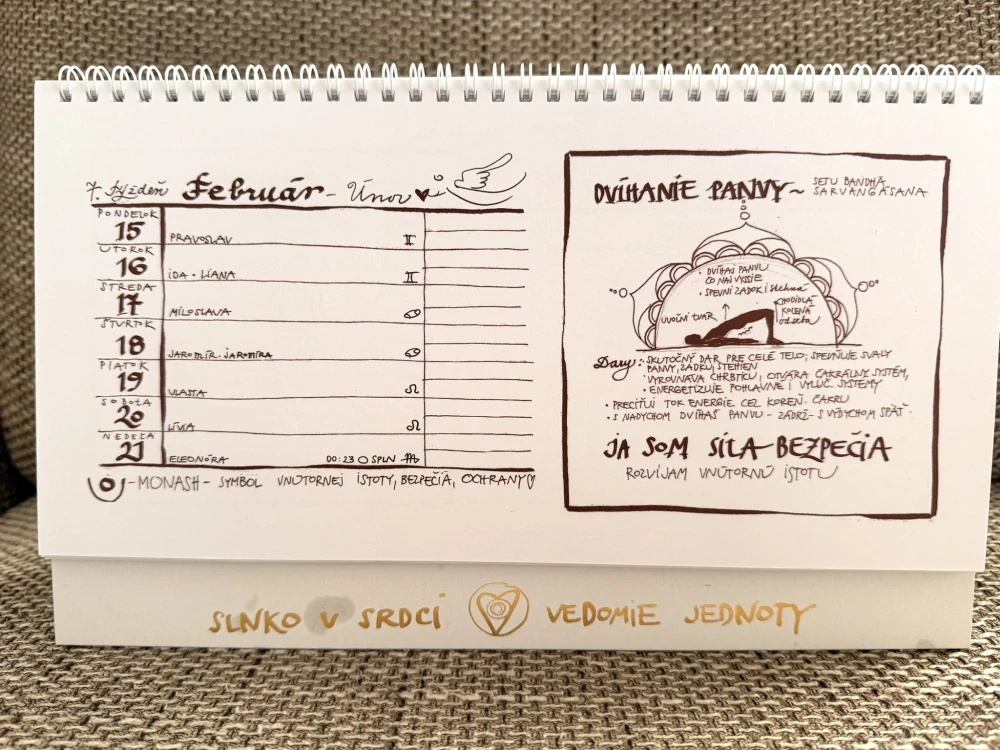 7. týždeň Február - Únor
PONDELOK
15 PRAVOSLAV ♊
UTOROK
16 IDA · LIANA ♊
STREDA
17 MILOSLAVA ♋
ŠTVRTOK
18 JAROMÍR · JAROMÍRA ♋
PIATOK
19 VLASTA ♌
SOBOTA
20 LÍVIA ♌
NEDEĽA
21 ELEONÓRA 00:23 O SPLN ♍
- MONASH - SYMBOL VNÚTORNEJ ISTOTY, BEZPEČIA, OCHRANY♡
DVÍHANIE PANVY ~ SETU BANDHA
SARVANGASANA
• DVÍHAJ PANVU
ČO NAJVYŠŠIE
• SPEVNI ZADOK I stehná
UVOĽNI TVÁR
CHODIDLÁ
KOLENÁ
od seba
Dary: · SKUTOČNÝ DAR PRE CELÉ TELO; SPEVŇUJE SVALY
PANVY, ZADKU, STEHIEN
· VYROVNÁVA CHRBTICU, OTVÁRA ČAKRÁLNY SYSTÉM,
· ENERGETIZUJE POHLAVNÉ I VYLUČ. SYSTÉMY
• PRECÍŤUJ TOK ENERGIE CEZ KOREŇ. ČAKRU
• S NÁDYCHOM DVÍHAŠ PANVU - ZÁDRŽ - S VÝDYCHOM SPÄŤ.
JA SOM SILA BEZPEČIA
ROZVÍJAM VNÚTORNÚ ISTOTU
SLNKO V SRDCI VEDOMIE JEDNOTY